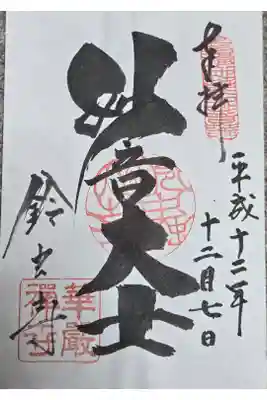 奉拝
平成十二年
十二月七日
観音大士
鈴虫寺
華厳
禅寺